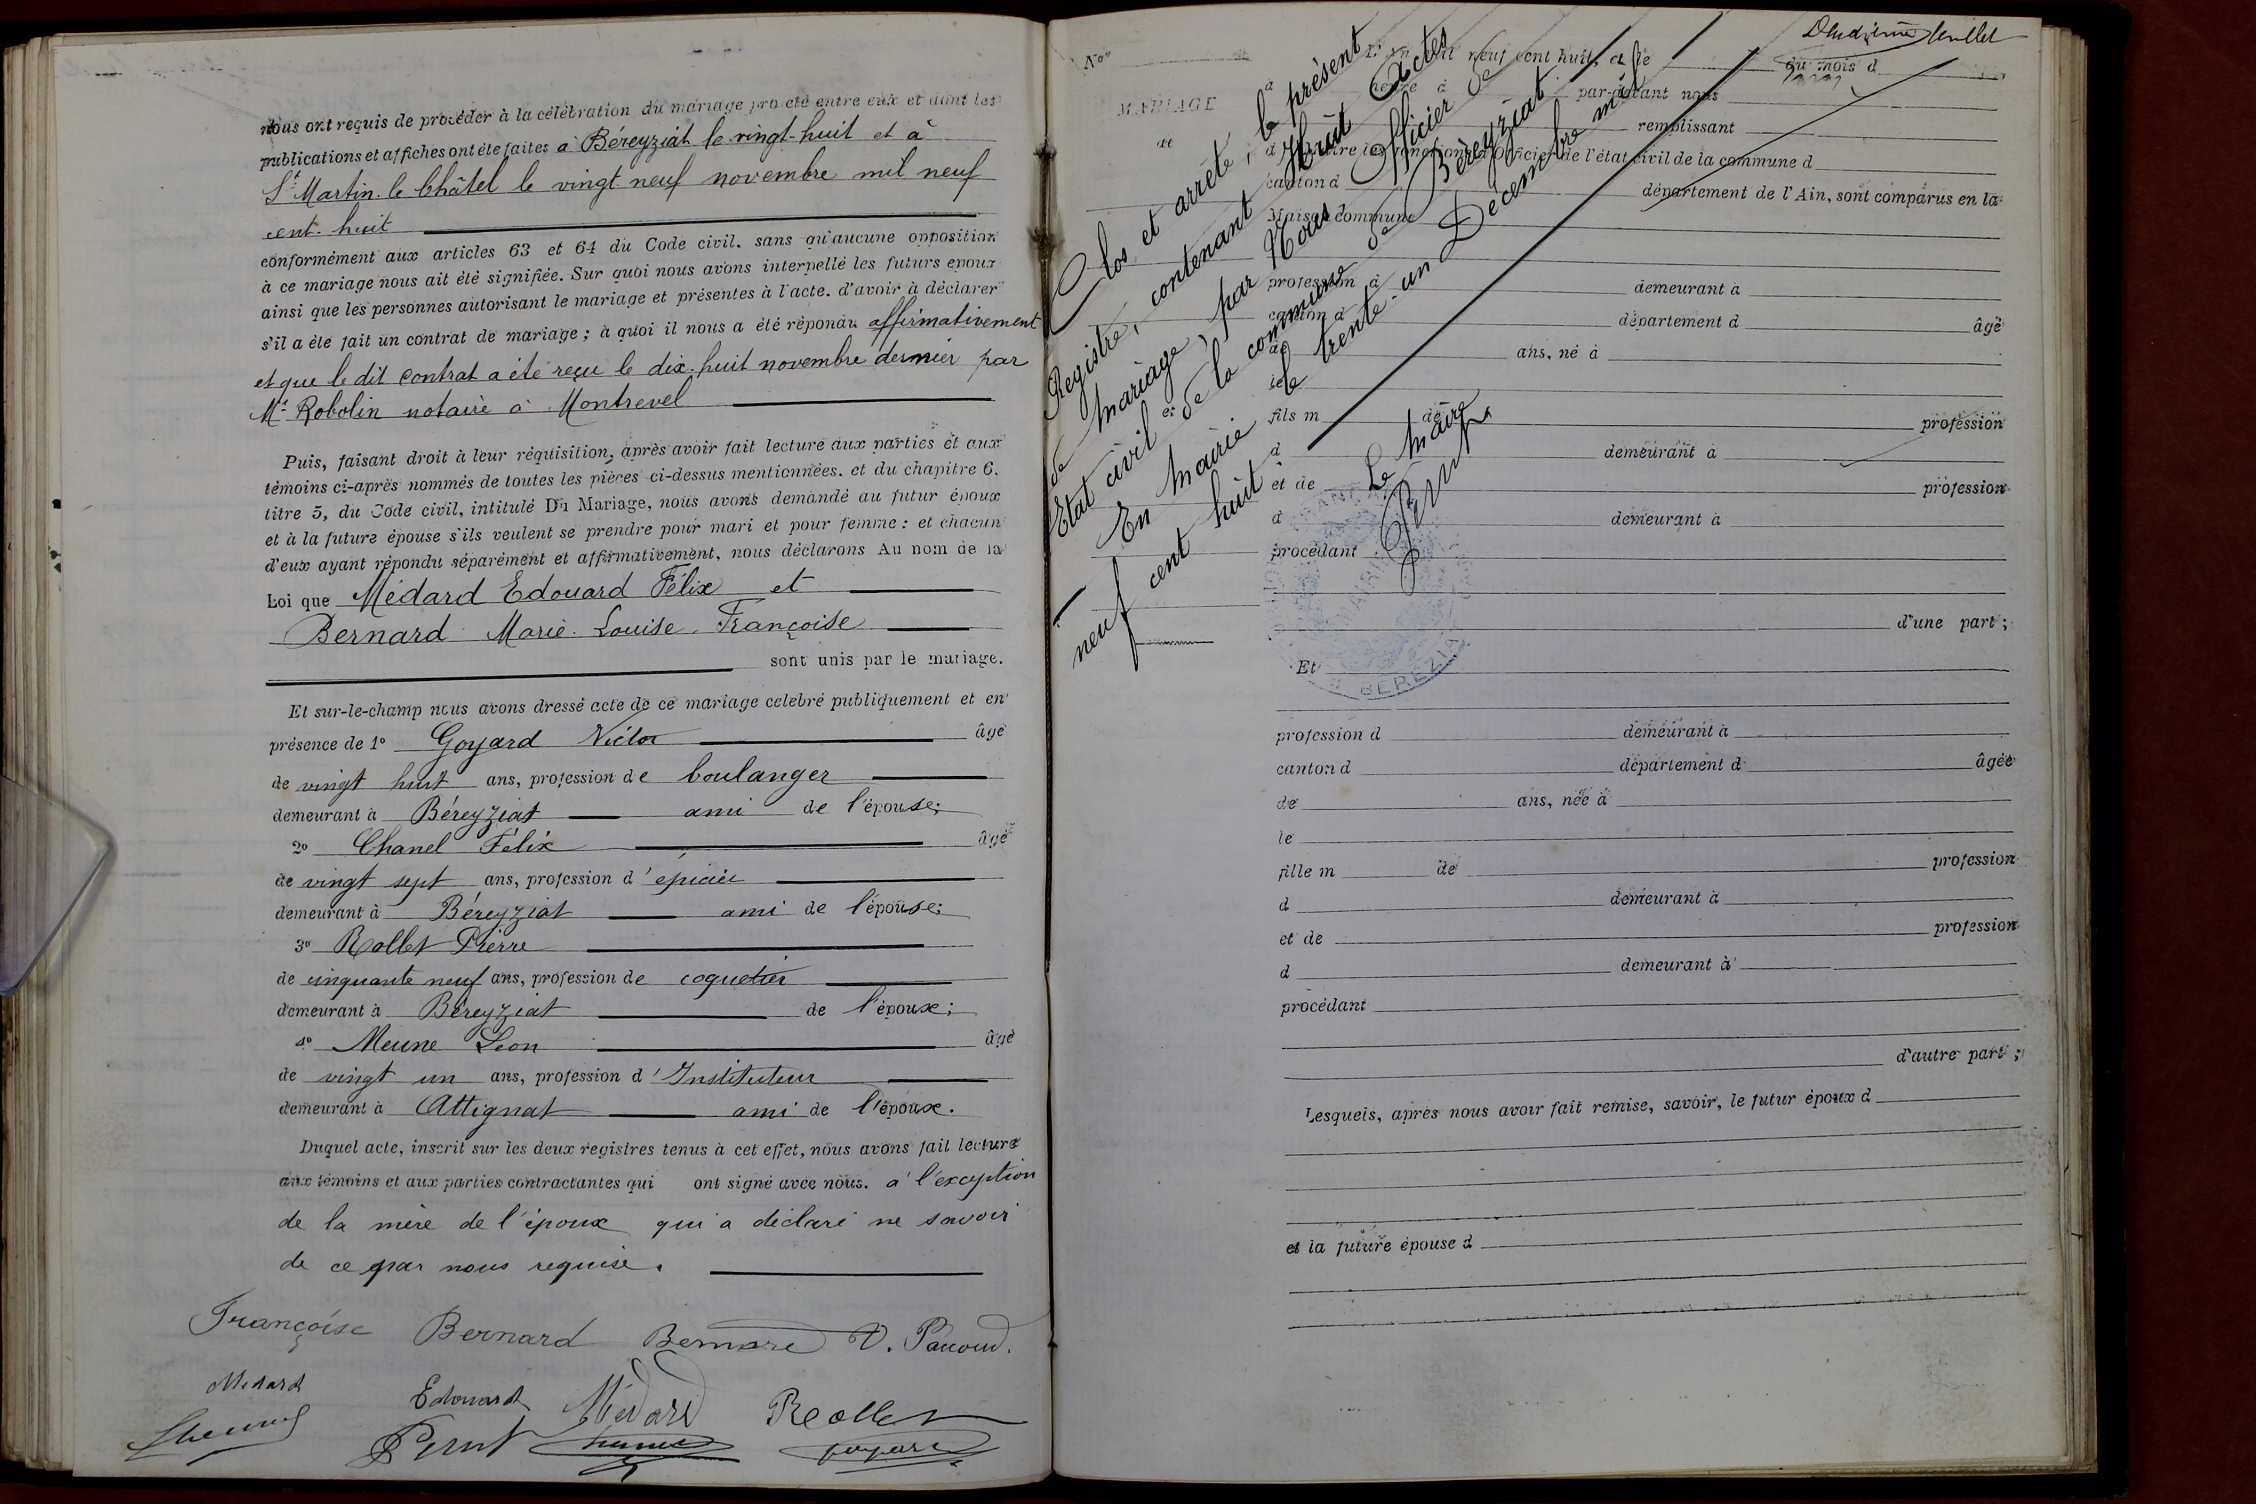 nous ont requis de procéder à la célébration du mariage projeté entre eux et dont les
publications et affiches ont été faites à Béreyziat le vingt-huit et à
St Martin-le Châtel le vingt neuf novembre mil neuf
cent-huit
conformément aux articles 63 et 64 du Code civil. sans qu'aucune opposition
à ce mariage nous ait été signifiée. Sur quoi nous avons interpellé les futurs époux
ainsi que les personnes autorisant le mariage et présentes à l'acte. d'avoir à déclarer
s'il a été fait un contrat de mariage ; à quoi il nous a été répondu affirmativement
et que le dit contrat a été reçu le dix-huit novembre dernier par
Me Robolin notaire à Montrevel
Puis, faisant droit à leur réquisition, après avoir fait lecture aux parties et aux
témoins ci-après nommés de toutes les pièces ci-dessus mentionnées. et du chapitre 6.
titre 5, du Code civil, intitulé Du Mariage, nous avons demandé au futur époux
et à la future épouse s'ils veulent se prendre pour mari et pour femme : et chacun
d'eux ayant répondu séparément et affirmativement, nous déclarons Au nom de la
Loi que Médard Edouard Félix et
Bernard Marie-Louise-Françoise
sont unis par le mariage.
Et sur-le-champ nous avons dressé acte de ce mariage célébré publiquement et en
présence de 1º Goyard Victor âgé
de vingt huit ans, profession de boulanger
demeurant à Béreyziat ami de l'épouse;
2º Chanel Félix âgé
de vingt sept ans, profession d'épicier
demeurant à Béreyziat ami de l'épouse;
3º Rollet Pierre
de cinquante neuf ans, profession de coquetier
demeurant à Béreyziat de l'époux;
4º Meune Léon âgé
de vingt un ans, profession d'Instituteur
demeurant à Attignat ami de l'époux.
Duquel acte, inscrit sur les deux registres tenus à cet effet, nous avons fait lecture
aux témoins et aux parties contractantes qui ont signé avec nous. à l'exception
de la mère de l'époux qui a déclaré ne savoir
de ce par nous requise.
Françoise Bernard Bernard V. Pauoud.
Médard Edouard Médard Rollet
Perut goyard
Deuxième feuillet
Nos
MARIAGE
de
et
L'an mil neuf cent huit, et le du mois d
à heure à par-devant nous
remplissant
d Maire les fonctions d'Officier de l'état civil de la commune d
canton d département de l'Ain, sont comparus en la
Maison commune
profession d demeurant à
canton d département d âgé
de ans, né à
le
fils m de profession
d demeurant à
et de profession
d demeurant à
procédant
d'une part ;
Et
profession d demeurant à
canton d département d âgée
de ans, née à
le
fille m de profession
d demeurant à
et de profession
d demeurant à
procédant
d'autre part ;
Lesquels, après nous avoir fait remise, savoir, le futur époux d
et la future épouse d
Clos et arrêté, le présent
Registre, contenant Huit Actes
de Mariage, par Nous Officier de
Etat civil de la commune de Béreyziat
En Mairie le trente-un Décembre mil
neuf cent huit
Le Maire
Perut
MAIRIE
BEREZIAT